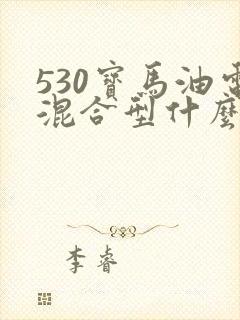 530寶馬油電
混合型什麼
李睿